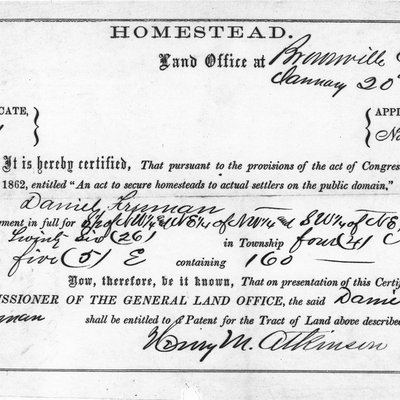 HOMESTEAD.
Land Office at Brownville
January 20
CATE, } { APPL
No
It is hereby certified, That pursuant to the provisions of the act of Congres
1862, entitled "An act to secure homesteads to actual settlers on the public domain,"
Daniel Freeman
yment in full for S½ of NW¼ and NE¼ of NW¼ and SW¼ of NE
Twenty Six (26) in Township four (4)
five (5) E containing 160
Now, therefore, be it known, That on presentation of this Certif
ISSIONER OF THE GENERAL LAND OFFICE, the said Danie
eman shall be entitled to a Patent for the Tract of Land above described
Henry M. Atkinson